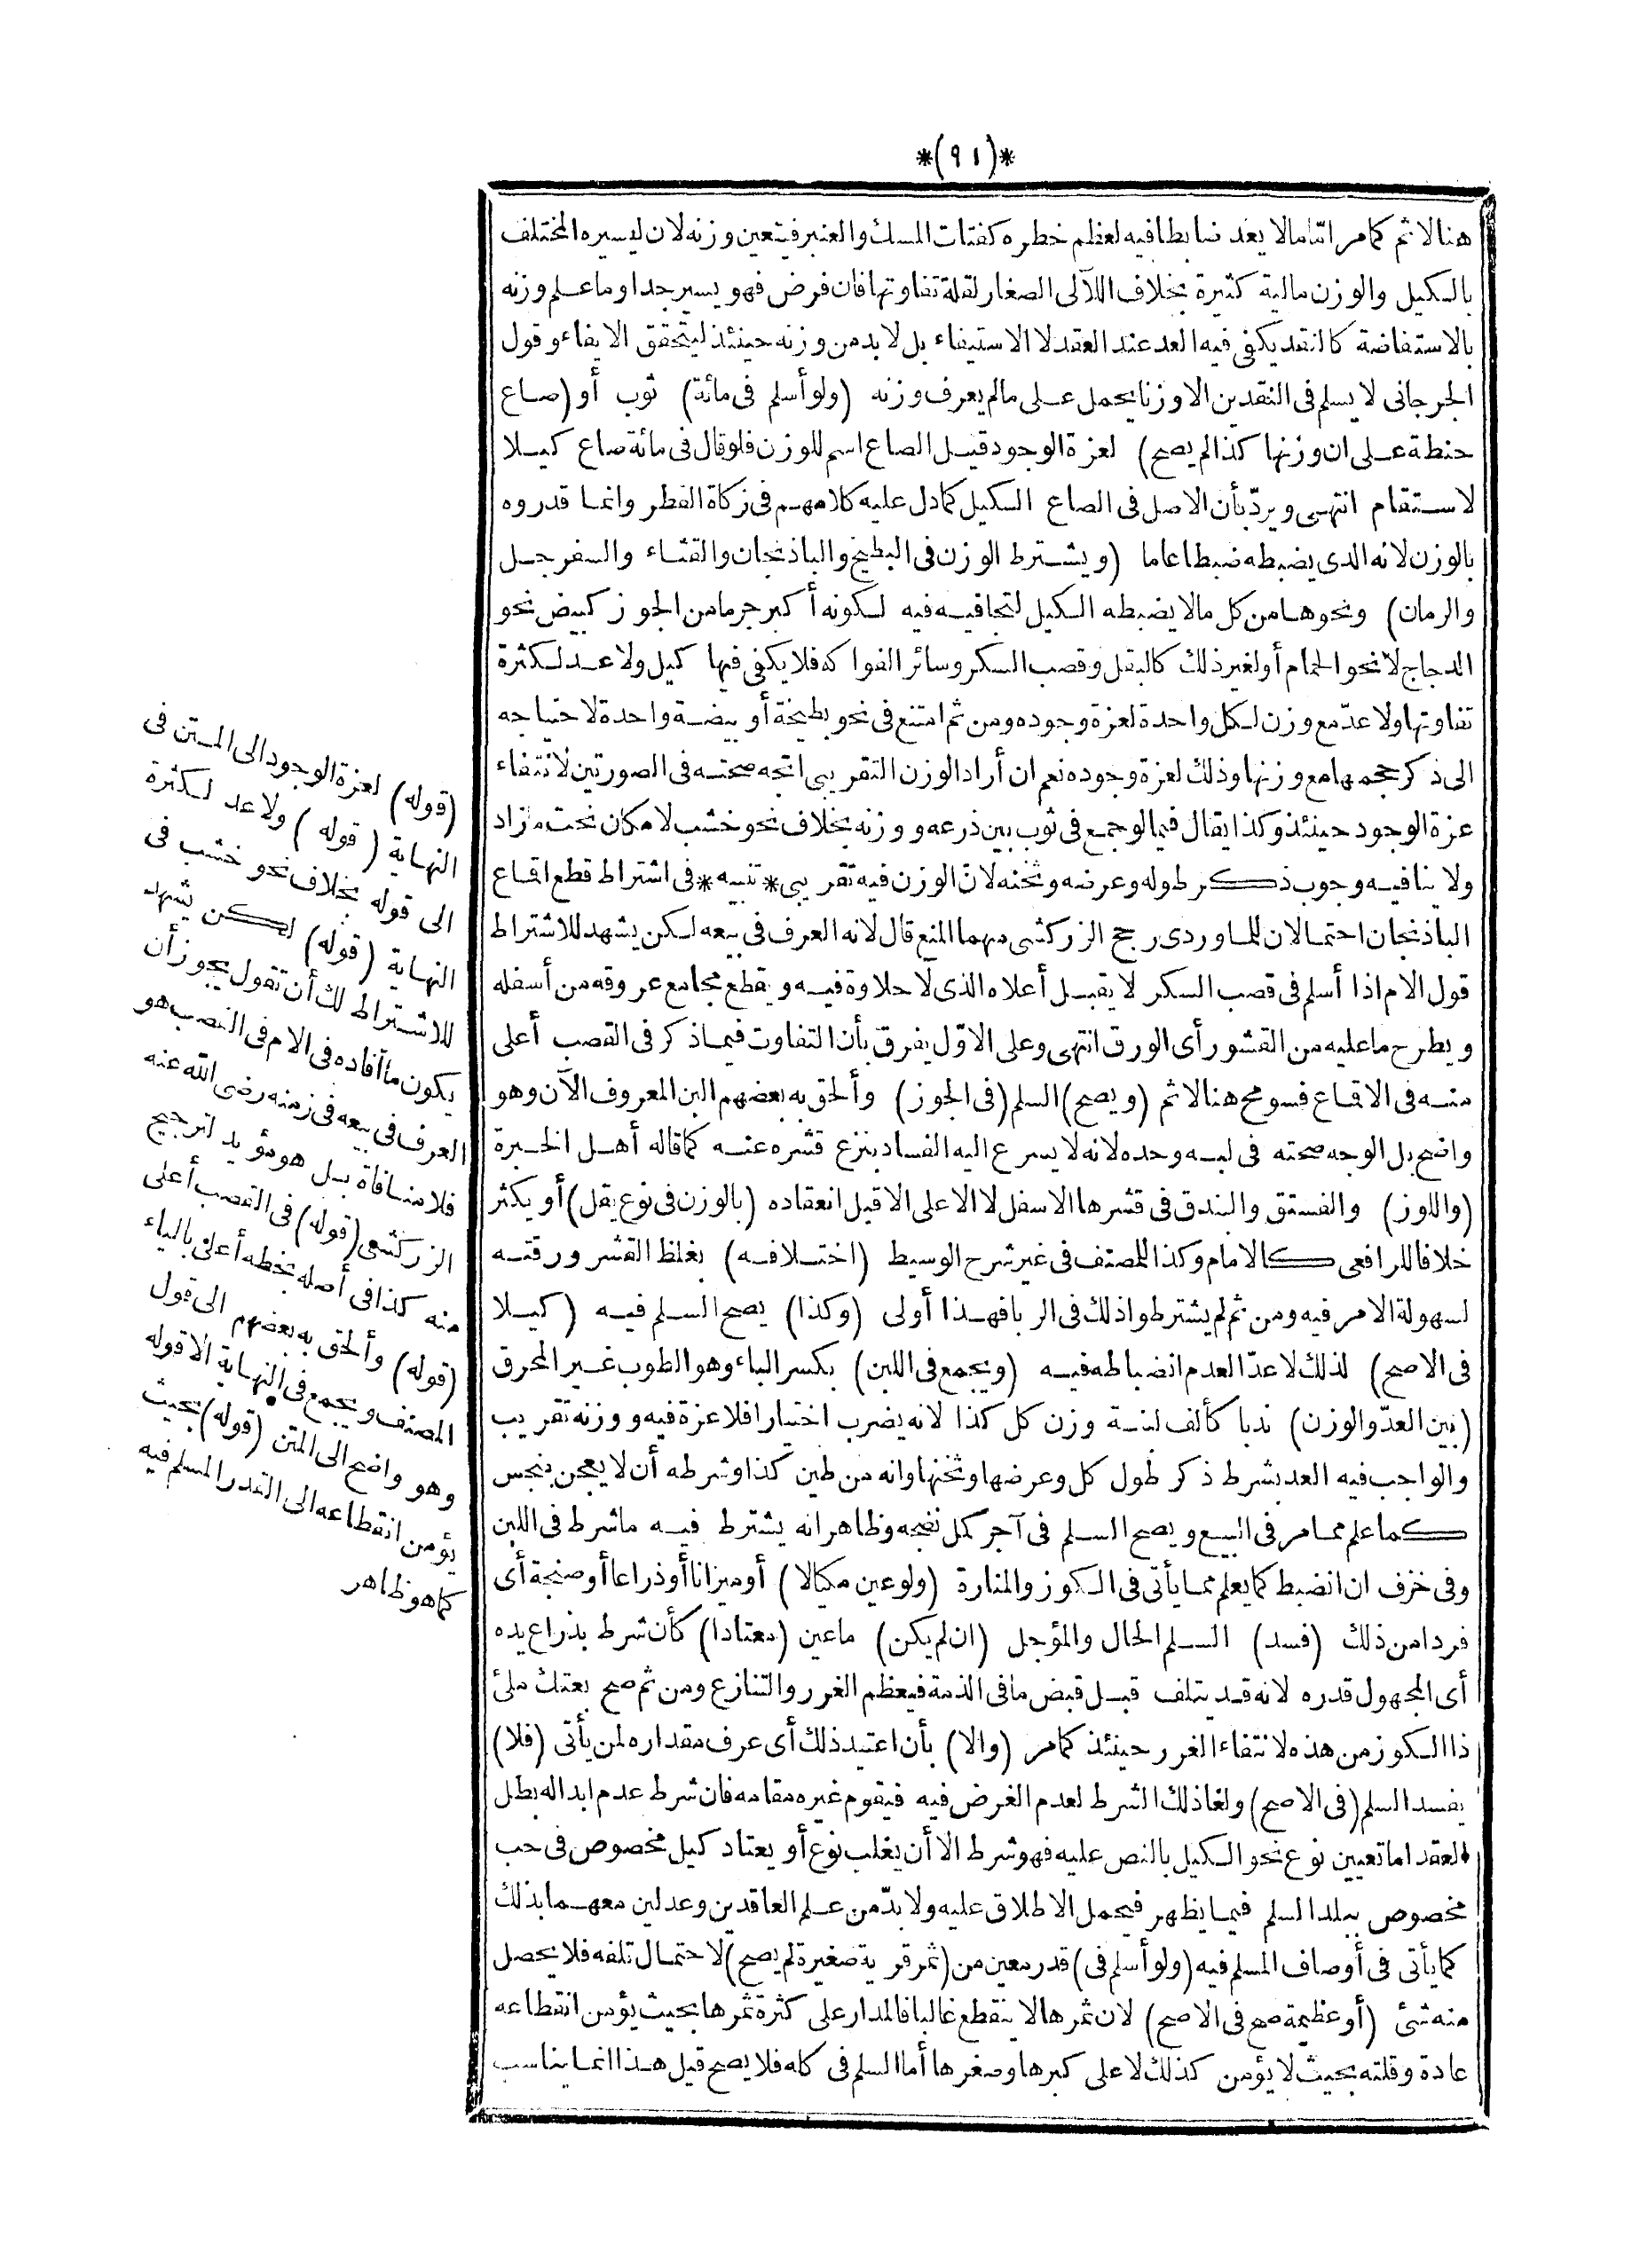 *(٩١)*
هنا لا ثم كما مر امّا ما لا يعد ضابطا فيه لعظم خطره كفتات المسك والعنبر فيتعين وزنه لان ليسيره المختلف
بالكيل والوزن مالية كثيرة بخلاف اللآلى الصغار لقلة تفاوتها فان فرض فهو يسير جدا وما علم وزنه
بالاستفاضة كالنقد يكفى فيه العد عند العقد لا الاستيفاء بل لا بد من وزنه حينئذ ليتحقق الايفاء وقول
الجرجانى لا يسلم فى النقدين الا وزنا يحمل على ما لم يعرف وزنه (ولو أسلم فى مائة) ثوب أو (صاع
حنطة على ان وزنها كذا لم يصح) لعزة الوجود قيل الصاع اسم للوزن فلو قال فى مائة صاع كيلا
لاستقام انتهى ويردّ بأن الاصل فى الصاع الكيل كما دل عليه كلامهم فى زكاة الفطر وانما قدروه
بالوزن لانه الذى يضبطه ضبطا عاما (ويشترط الوزن فى البطيخ والباذنجان والقثاء والسفرجل
والرمان) ونحوها من كل ما لا يضبطه الكيل لتجافيه فيه لكونه أكبر جرما من الجوز كبيض نحو
الدجاج لا نحو الحمام أو لغير ذلك كالبقل وقصب السكر وسائر الفواكه فلا يكفى فيها كيل ولا عد لكثرة
تفاوتها ولا عدّ مع وزن لكل واحدة لعزة وجوده ومن ثم امتنع فى نحو بطيخة أو بيضة واحدة لاحتياجه
الى ذكر حجمها مع وزنها وذلك لعزة وجوده نعم ان أراد الوزن التقريبى اتجه صحته فى الصورتين لانتفاء
عزة الوجود حينئذ وكذا يقال فيما لو جمع فى ثوب بين ذرعه ووزنه بخلاف نحو خشب لامكان نحت ما زاد
ولا ينافيه وجوب ذكر طوله وعرضه وثخنه لانّ الوزن فيه تقريبى *تنبيه* فى اشتراط قطع اقماع
الباذنجان احتمالان للماوردى رجح الزركشى منهما المنع قال لانه العرف فى بيعه لكن يشهد للاشتراط
قول الام اذا أسلم فى قصب السكر لا يقبل أعلاه الذى لا حلاوة فيه ويقطع مجامع عروقه من أسفله
ويطرح ما عليه من القشور أى الورق انتهى وعلى الاوّل يفرق بأن التفاوت فيما ذكر فى القصب أعلى
منه فى الاقماع فسومح هنا لا ثم (ويصح) السلم (فى الجوز) وألحق به بعضهم البن المعروف الآن وهو
واضح بل الوجه صحته فى لبه وحده لانه لا يسرع اليه الفساد بنزع قشره عنه كما قاله أهل الخبرة
(واللوز) والفستق والبندق فى قشرها الاسفل لا الاعلى الا قبل انعقاده (بالوزن فى نوع يقل) أو يكثر
خلافا للرافعى كالامام وكذا للمصنف فى غير شرح الوسيط (اختلافه) بغلظ القشر ورقته
لسهولة الامر فيه ومن ثم لم يشترطوا ذلك فى الربا فهذا أولى (وكذا) يصح السلم فيه (كيلا
فى الاصح) لذلك لا عدّا لعدم انضباطه فيه (ويجمع فى اللبن) بكسر الباء وهو الطوب غير المحرق
(بين العدّ والوزن) ندبا كألف لبنة وزن كل كذا لانه يضرب اختيارا فلا عزة فيه ووزنه تقريب
والواجب فيه العد بشرط ذكر طول كل وعرضها وثخنها وانه من طين كذا وشرطه أن لا يعجن بنجس
كما علم مما مر فى البيع ويصح السلم فى آجر كمل نضجه وظاهر انه يشترط فيه ما شرط فى اللبن
وفى خزف ان انضبط كما يعلم مما يأتى فى الكوز والمنارة (ولو عين مكيالا) أو ميزانا أو ذراعا أو صنجة أى
فردا من ذلك (فسد) السلم الحال والمؤجل (ان لم يكن) ما عين (معتادا) كأن شرط بذراع يده
أى المجهول قدره لانه قد يتلف قبل قبض ما فى الذمة فيعظم الغرر والتنازع ومن ثم صح بعتك ملئ
ذا الكوز من هذه لانتفاء الغرر حينئذ كما مر (والا) بأن اعتيد ذلك أى عرف مقداره لمن يأتى (فلا)
يفسد السلم (فى الاصح) ولغا ذلك الشرط لعدم الغرض فيه فيقوم غيره مقامه فان شرط عدم ابداله بطل
العقد اما تعيين نوع نحو الكيل بالنص عليه فهو شرط الا أن يغلب نوع أو يعتاد كيل مخصوص فى حب
مخصوص ببلد السلم فيما يظهر فيحمل الاطلاق عليه ولا بدّ من علم العاقدين وعدلين معهما بذلك
كما يأتى فى أوصاف المسلم فيه (ولو أسلم فى) قدر معين من (ثمر قرية صغيرة لم يصح) لاحتمال تلفه فلا يحصل
منه شئ (أو عظيمة صح فى الاصح) لان ثمرها لا ينقطع غالبا فالمدار على كثرة ثمرها بحيث يؤمن انقطاعه
عادة وقلته بحيث لا يؤمن كذلك لا على كبرها وصغرها أما السلم فى كله فلا يصح قيل هذا انما يناسب
(قوله) لعزة الوجود الى المتن فى
النهاية (قوله) ولا عد لكثرة
الى قوله بخلاف نحو خشب فى
النهاية (قوله) لكن يشهد
للاشتراط لك أن تقول يجوز أن
يكون ما أفاده فى الام فى القصب هو
العرف فى بيعه فى زمنه رضى الله عنه
فلا منافاة بل هو مؤيد لترجيح
الزركشى (قوله) فى القصب أعلى
منه كذا فى أصله بخطه أعلى بالياء
(قوله) وألحق به بعضهم الى قول
المصنف ويجمع فى النهاية الا قوله
وهو واضح الى المتن (قوله) بحيث
يؤمن انقطاعه الى القدر المسلم فيه
كما هو ظاهر